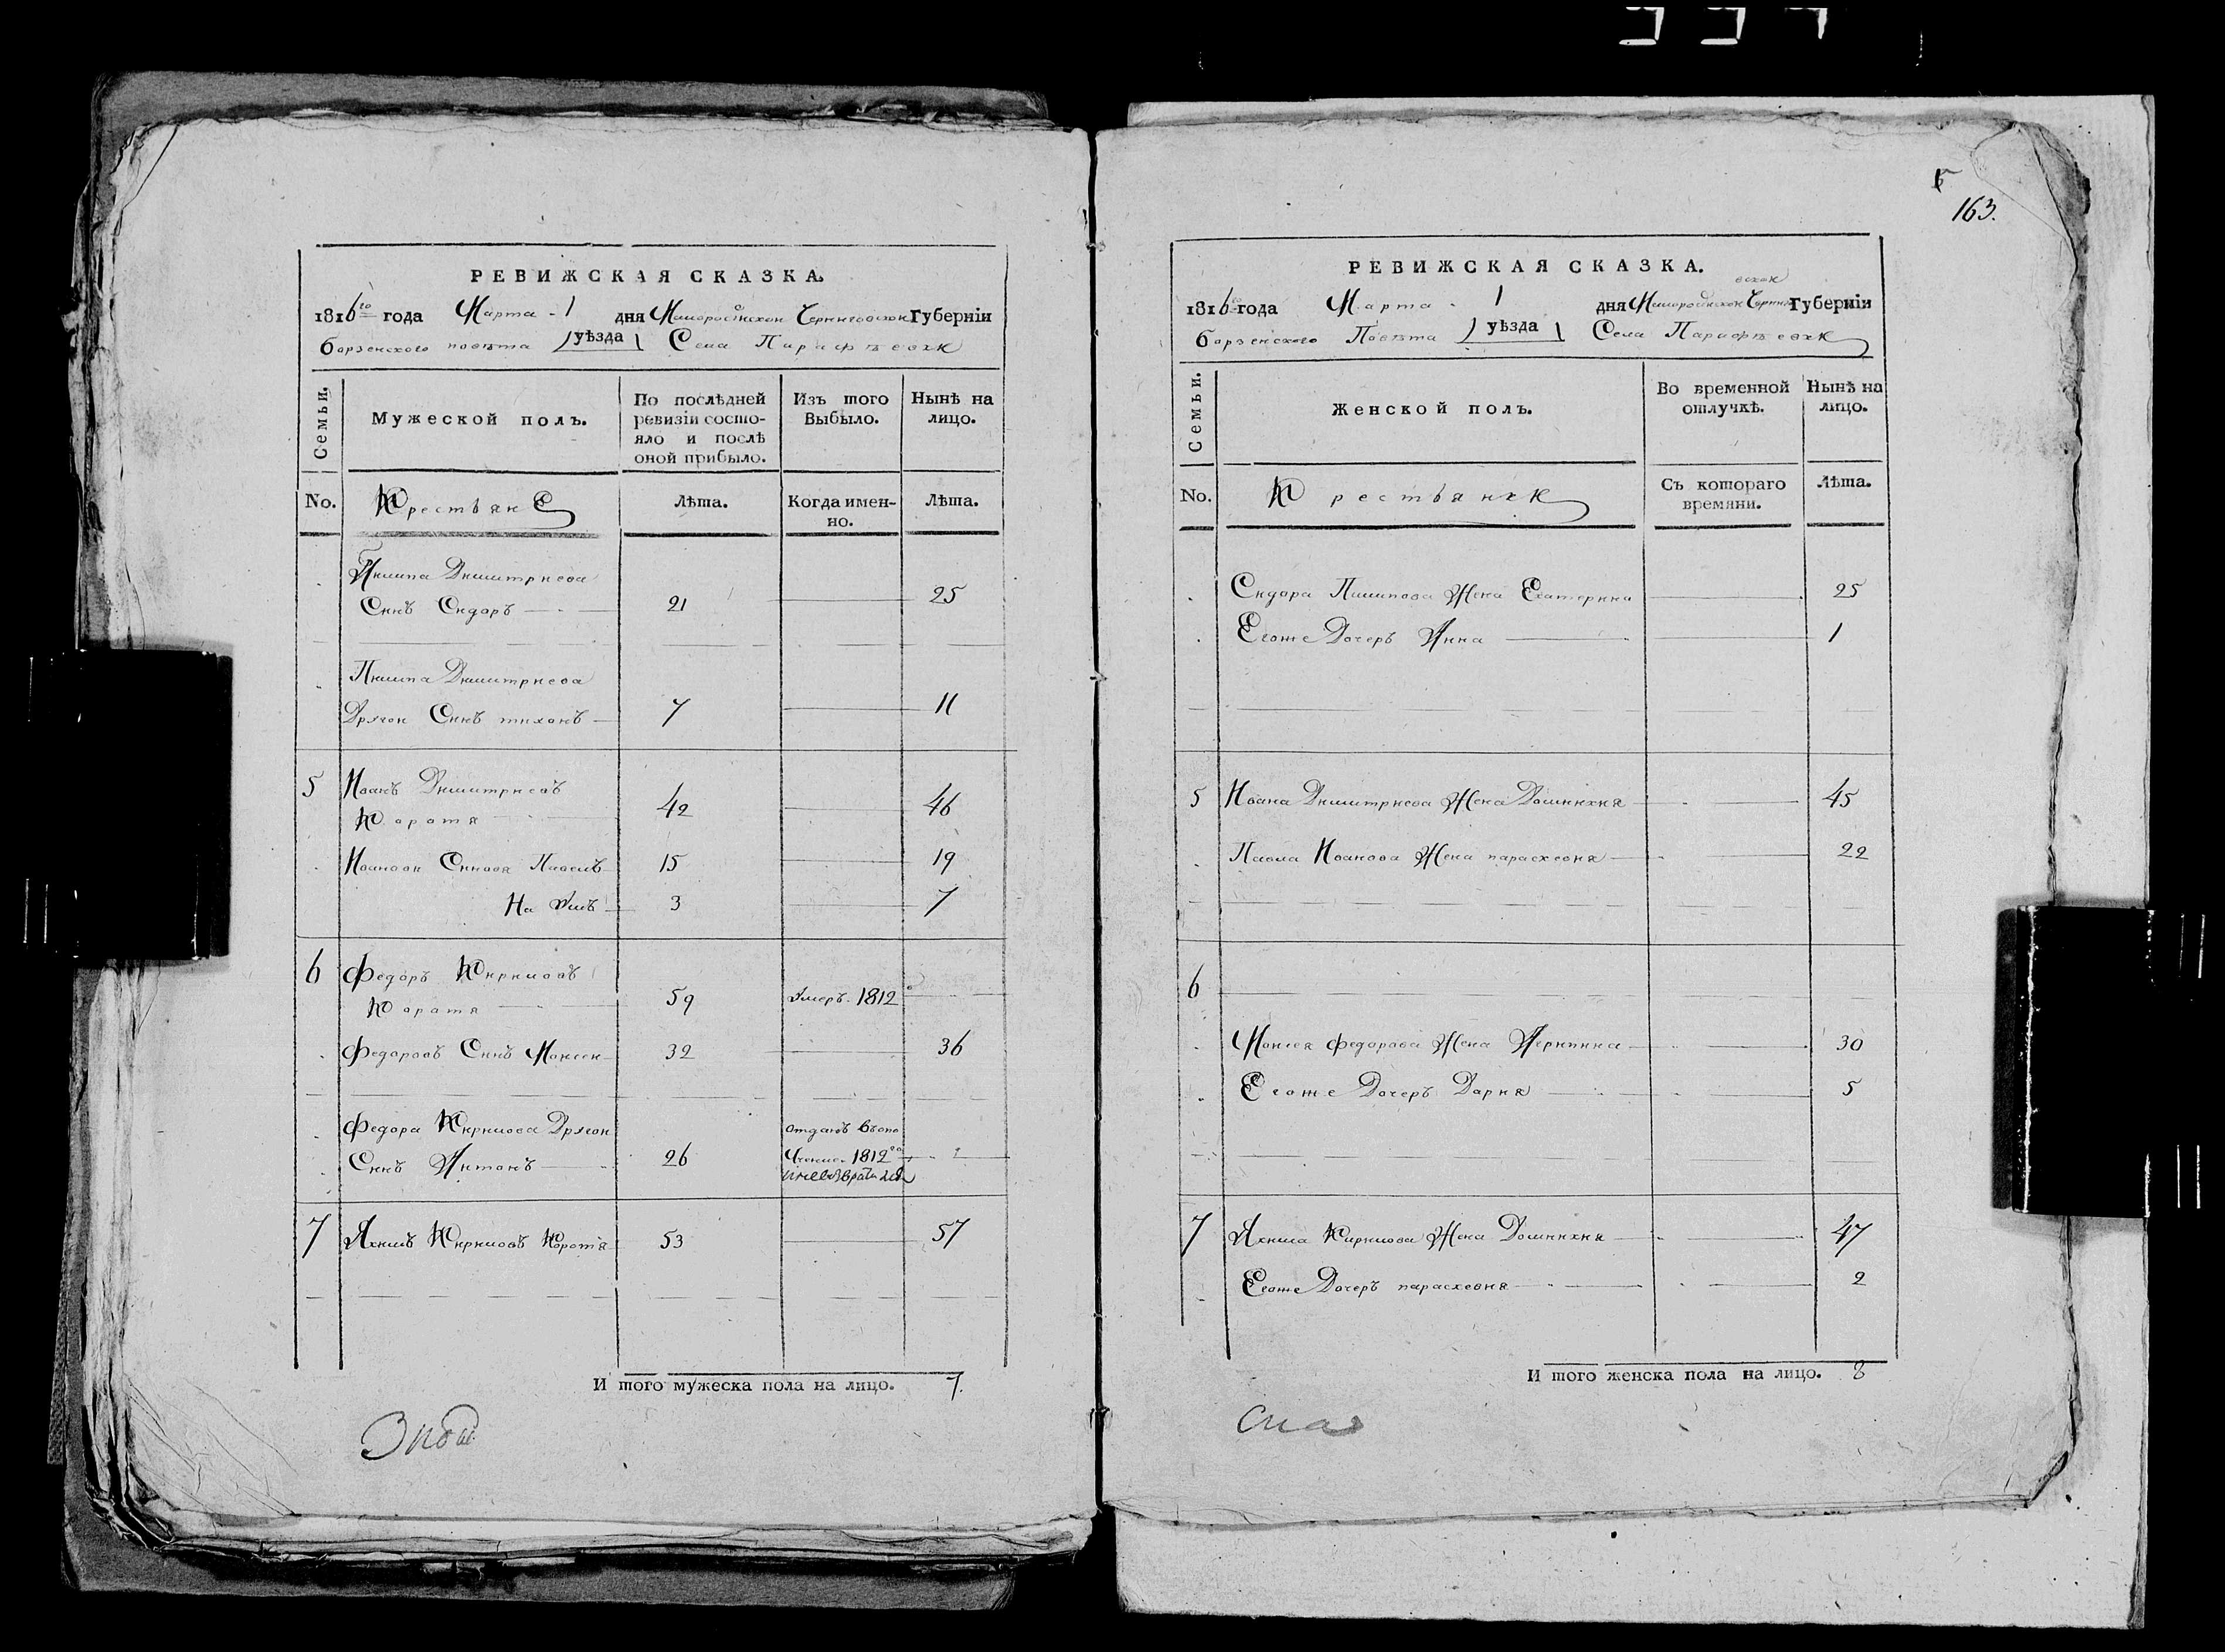 РЕВИЖСКАЯ СКАЗКА.
1816го года Марта - 1 дня Малоросійской Черниговской Губерніи
борзенского повѣта уѣзда Села Парафѣевки
Семьи.
Мужеской полъ.
По послѣдней
ревизіи состо-
яло и послѣ
оной прибыло.
Изъ того
Выбыло.
Нынѣ на
лицо.
No.
Крестьяне
Лѣта.
Когда имен-
но.
Лѣта.
Пилипа Димитриева
Синъ Сидоръ 21 25
Пилипа Димитриева
Другой Синъ тихонъ 7 11
5 Иванъ Димитриевъ
Коротя 42 46
Ивановы Синовя Павелъ 15 19
3 7
6 Федоръ Кириловъ
Коротя 59 Умеръ 1812
Федоровъ Синъ Моисей 32 36
Федора Кирилова Другой
отданъ Вопо
Синъ Антонъ 26 лчение 1812го
и невозвратился
7 Якимъ Кириловъ Коротя 53 57
И того мужеска пола на лицо. 7.
163.
РЕВИЖСКАЯ СКАЗКА.
1816го года Марта - 1 дня Малоросійской Черниговской Губерніи
борзенского Повѣта уѣзда Села Парафѣевки
Семьи.
Женской полъ.
Во временной
отлучкѣ.
Нынѣ на
лицо.
No.
Крестьянки
Съ котораго
времяни.
Лѣта.
Сидора Пилипова Жена Екатерина 25
Егоже Дочеръ Анна 1
5 Ивана Димитриева Жена Домникия 45
Павла Иванова Жена параскевия 22
6
Моисея Федорова Жена 30
Егоже Дочеръ Дария 5
7 Якима Кирилова Жена Домникия 47
Егоже Дочеръ параскевия 2
И того женска пола на лицо. 8